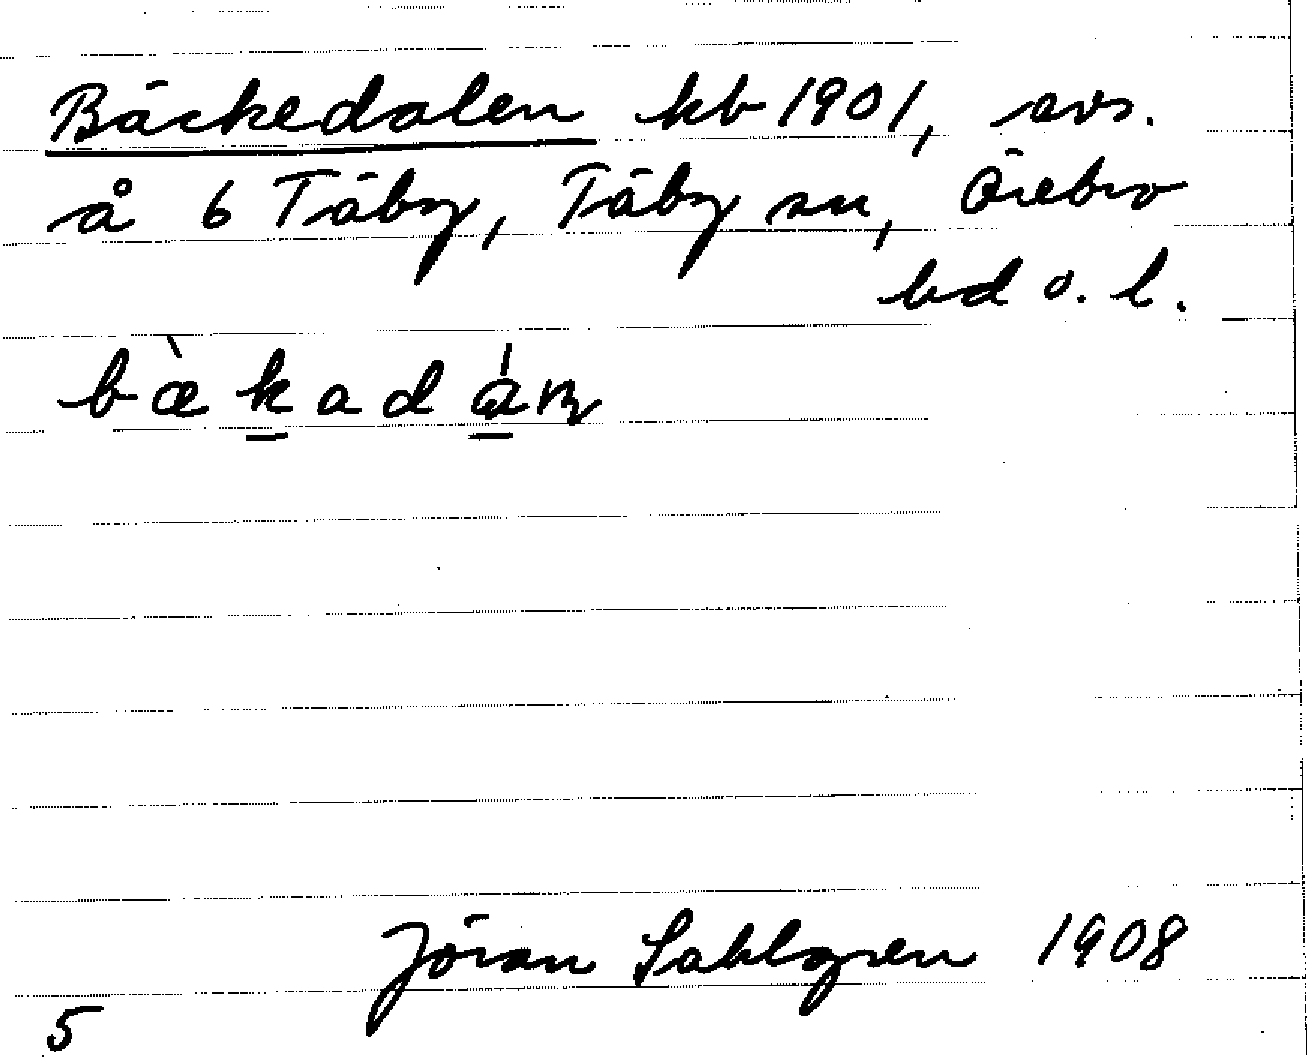 Bäckedalen kb 1901, avs.
å 6 Täby, Täby sn, Örebro
hd o. l.
bæ̀kadán
Jöran Sahlgren 1908
5